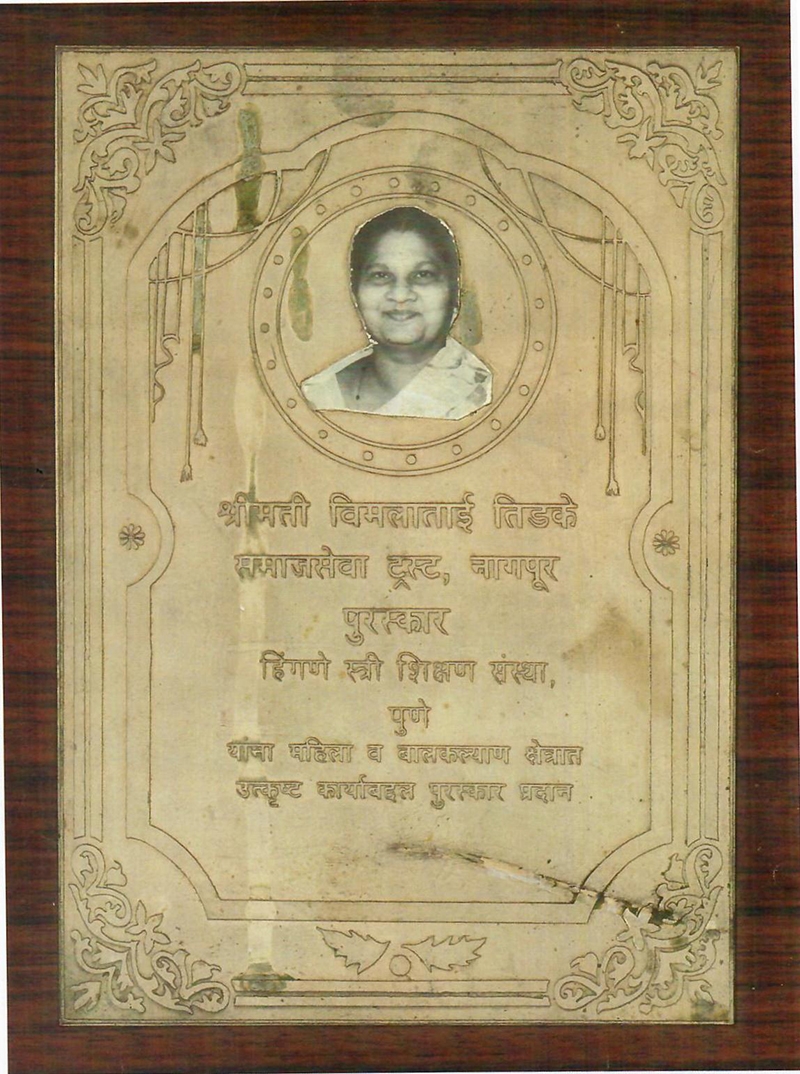 श्रीमती विमलाताई तिडके
समाजसेवा ट्रस्ट, नागपूर
पुरस्कार
हिंगणे स्त्री शिक्षण संस्था,
पुणे
यांना महिला व बालकल्याण क्षेत्रात
उत्कृष्ट कार्याबद्दल पुरस्कार प्रदान